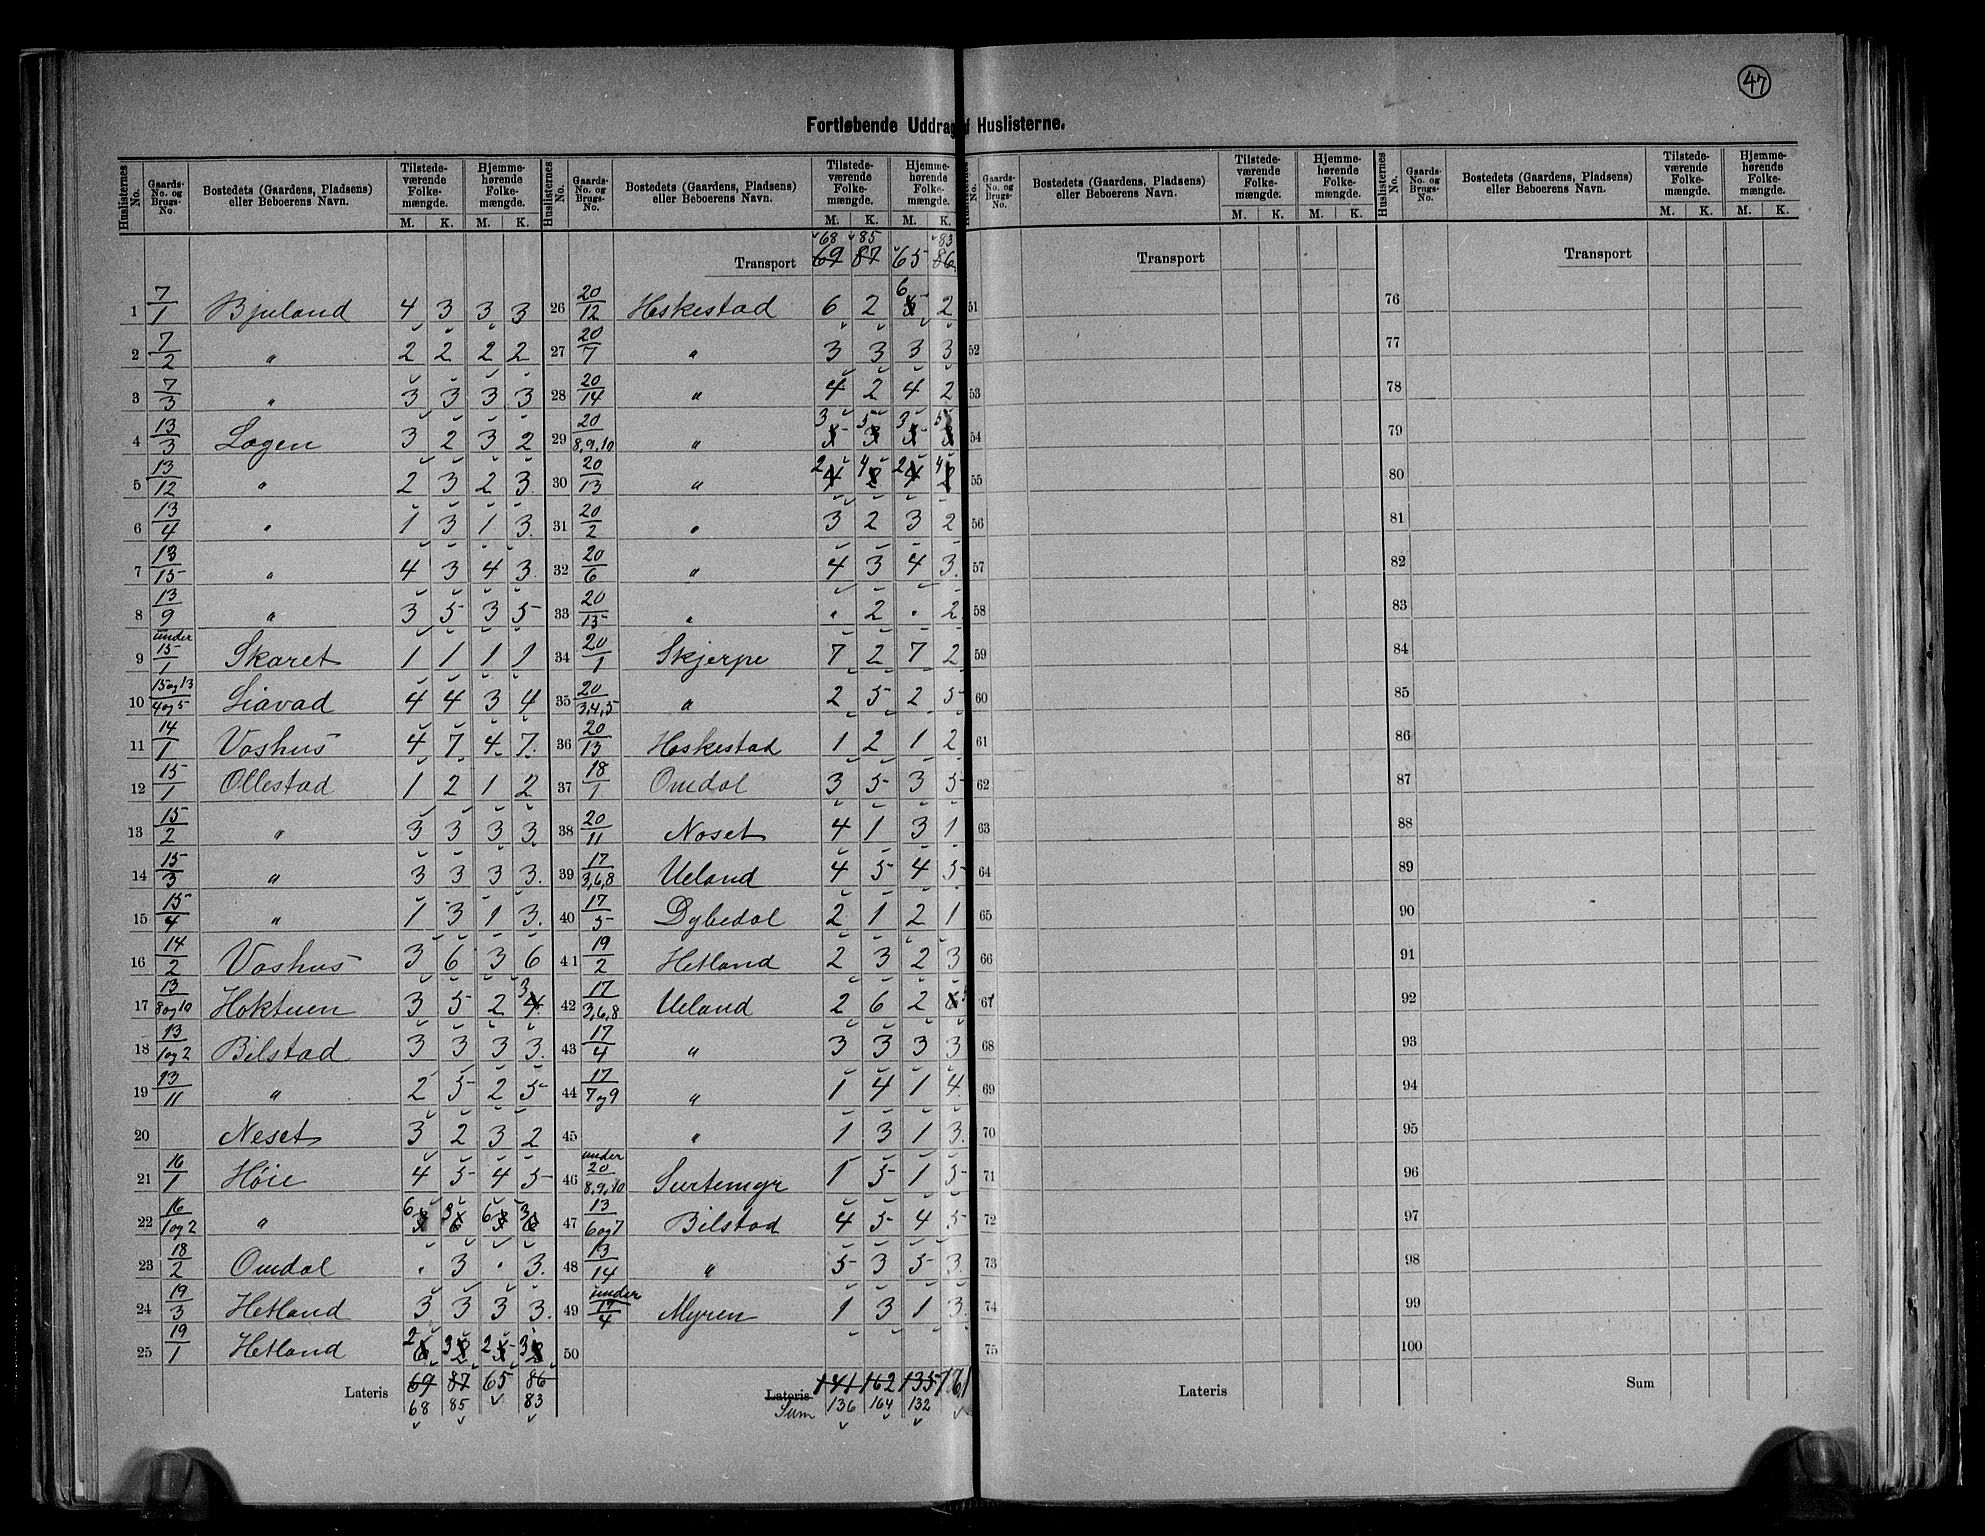 47
Fortløbende Uddrag f Huslisterne.
Huslisternes No. | Gaards-No. og Brugs-No. | Bostedets (Gaardens, Pladsens) eller Beboerens Navn. | Tilstede-værende Folke-mængde. M. K. | Hjemme-hørende Folke-mængde. M. K.
1 7/1 Bjuland 4 3 3 3
2 7/2 " 2 2 2 2
3 7/3 " 3 3 3 3
4 13/3 Lagen 3 2 3 2
5 13/12 " 2 3 2 3.
6 13/4 " 1 3 1 3.
7 13/15 " 4 3 4 3.
8 13/9 " 3 5 3 5
9 under 15/1 Skaret 1 1 1 1
10 15 og 13/4 og 5 Liavad 4 4 3 4
11 14/1 Vashus 4 7 4 7.
12 15/1 Ollestad 1 2 1 2
13 15/2 " 3 3 3 3
14 15/3 " 3 3 3 3.
15 15/4 " 1 3 1 3.
16 14/2 Vashus 3 6 3 6
17 13/8 og 10 Hoktuen 3 5 2 3 4
18 13/1 og 2 Bilstad 3 3 3 3.
19 13/11 " 2 5 2 5
20 Neset 3 2 3 2
21 16/1 Høie 4 5 4 5
22 16/1 og 2 " 6 3 6 3
23 18/2 Omdal . 3 . 3.
24 19/3 Hetland 3 3 3 3.
25 19/1 Hetland 2 3 2 3
Lateris 69 87 65 86
68 85 83
68 85 83
Transport 69 87 65 86
26 20/12 Heskestad 6 2 6 5 2
27 20/7 " 3 3 3 3
28 20/14 " 4 2 4 2
29 20/8,9,10 " 3 5 5 3 3 5 5 3
30 20/13 " 2 4 4 2 2 4 4 2
31 20/2 " 3 2 3 2
32 20/6 " 4 3 4 3.
33 20/15 " . 2 . 2
34 20/1 Skjerpe 7 2 7 2
35 20/3,4,5 " 2 5 2 5
36 20/13 Heskestad 1 2 1 2
37 18/1 Omdal 3 5 3 5
38 20/11 Noset 4 1 3 1
39 17/3,6,8 Ueland 4 5 4 5
40 17/5 Dybedal 2 1 2 1
41 19/2 Hetland 2 3 2 3
42 17/3,6,8 Ueland 2 6 2
43 17/4 " 3 3 3 3
44 17/7 og 9 " 1 4 1 4.
45 " 1 3 1 3.
46 under 20/8,9,10 Surtemyr 1 5 1 5
47 13/6 og 7 Bilstad 4 5 4 5
48 13/14 " 5 3 5 3.
49 under 17/4 Myren 1 3 1 3.
50
Lateris 141 162 135 161
Sum 136 164 132
No. | Gaards-No. og Brugs-No. | Bostedets (Gaardens, Pladsens) eller Beboerens Navn. | Tilstede-værende Folke-mængde. M. K. | Hjemme-hørende Folke-mængde. M. K.
Transport
51
52
53
54
55
56
57
58
59
60
61
62
63
64
65
66
67
68
69
70
71
72
73
74
75
Lateris
Huslisternes No. | Gaards-No. og Brugs-No. | Bostedets (Gaardens, Pladsens) eller Beboerens Navn. | Tilstede-værende Folke-mængde. M. K. | Hjemme-hørende Folke-mængde. M. K.
Transport
76
77
78
79
80
81
82
83
84
85
86
87
88
89
90
91
92
93
94
95
96
97
98
99
100
Sum